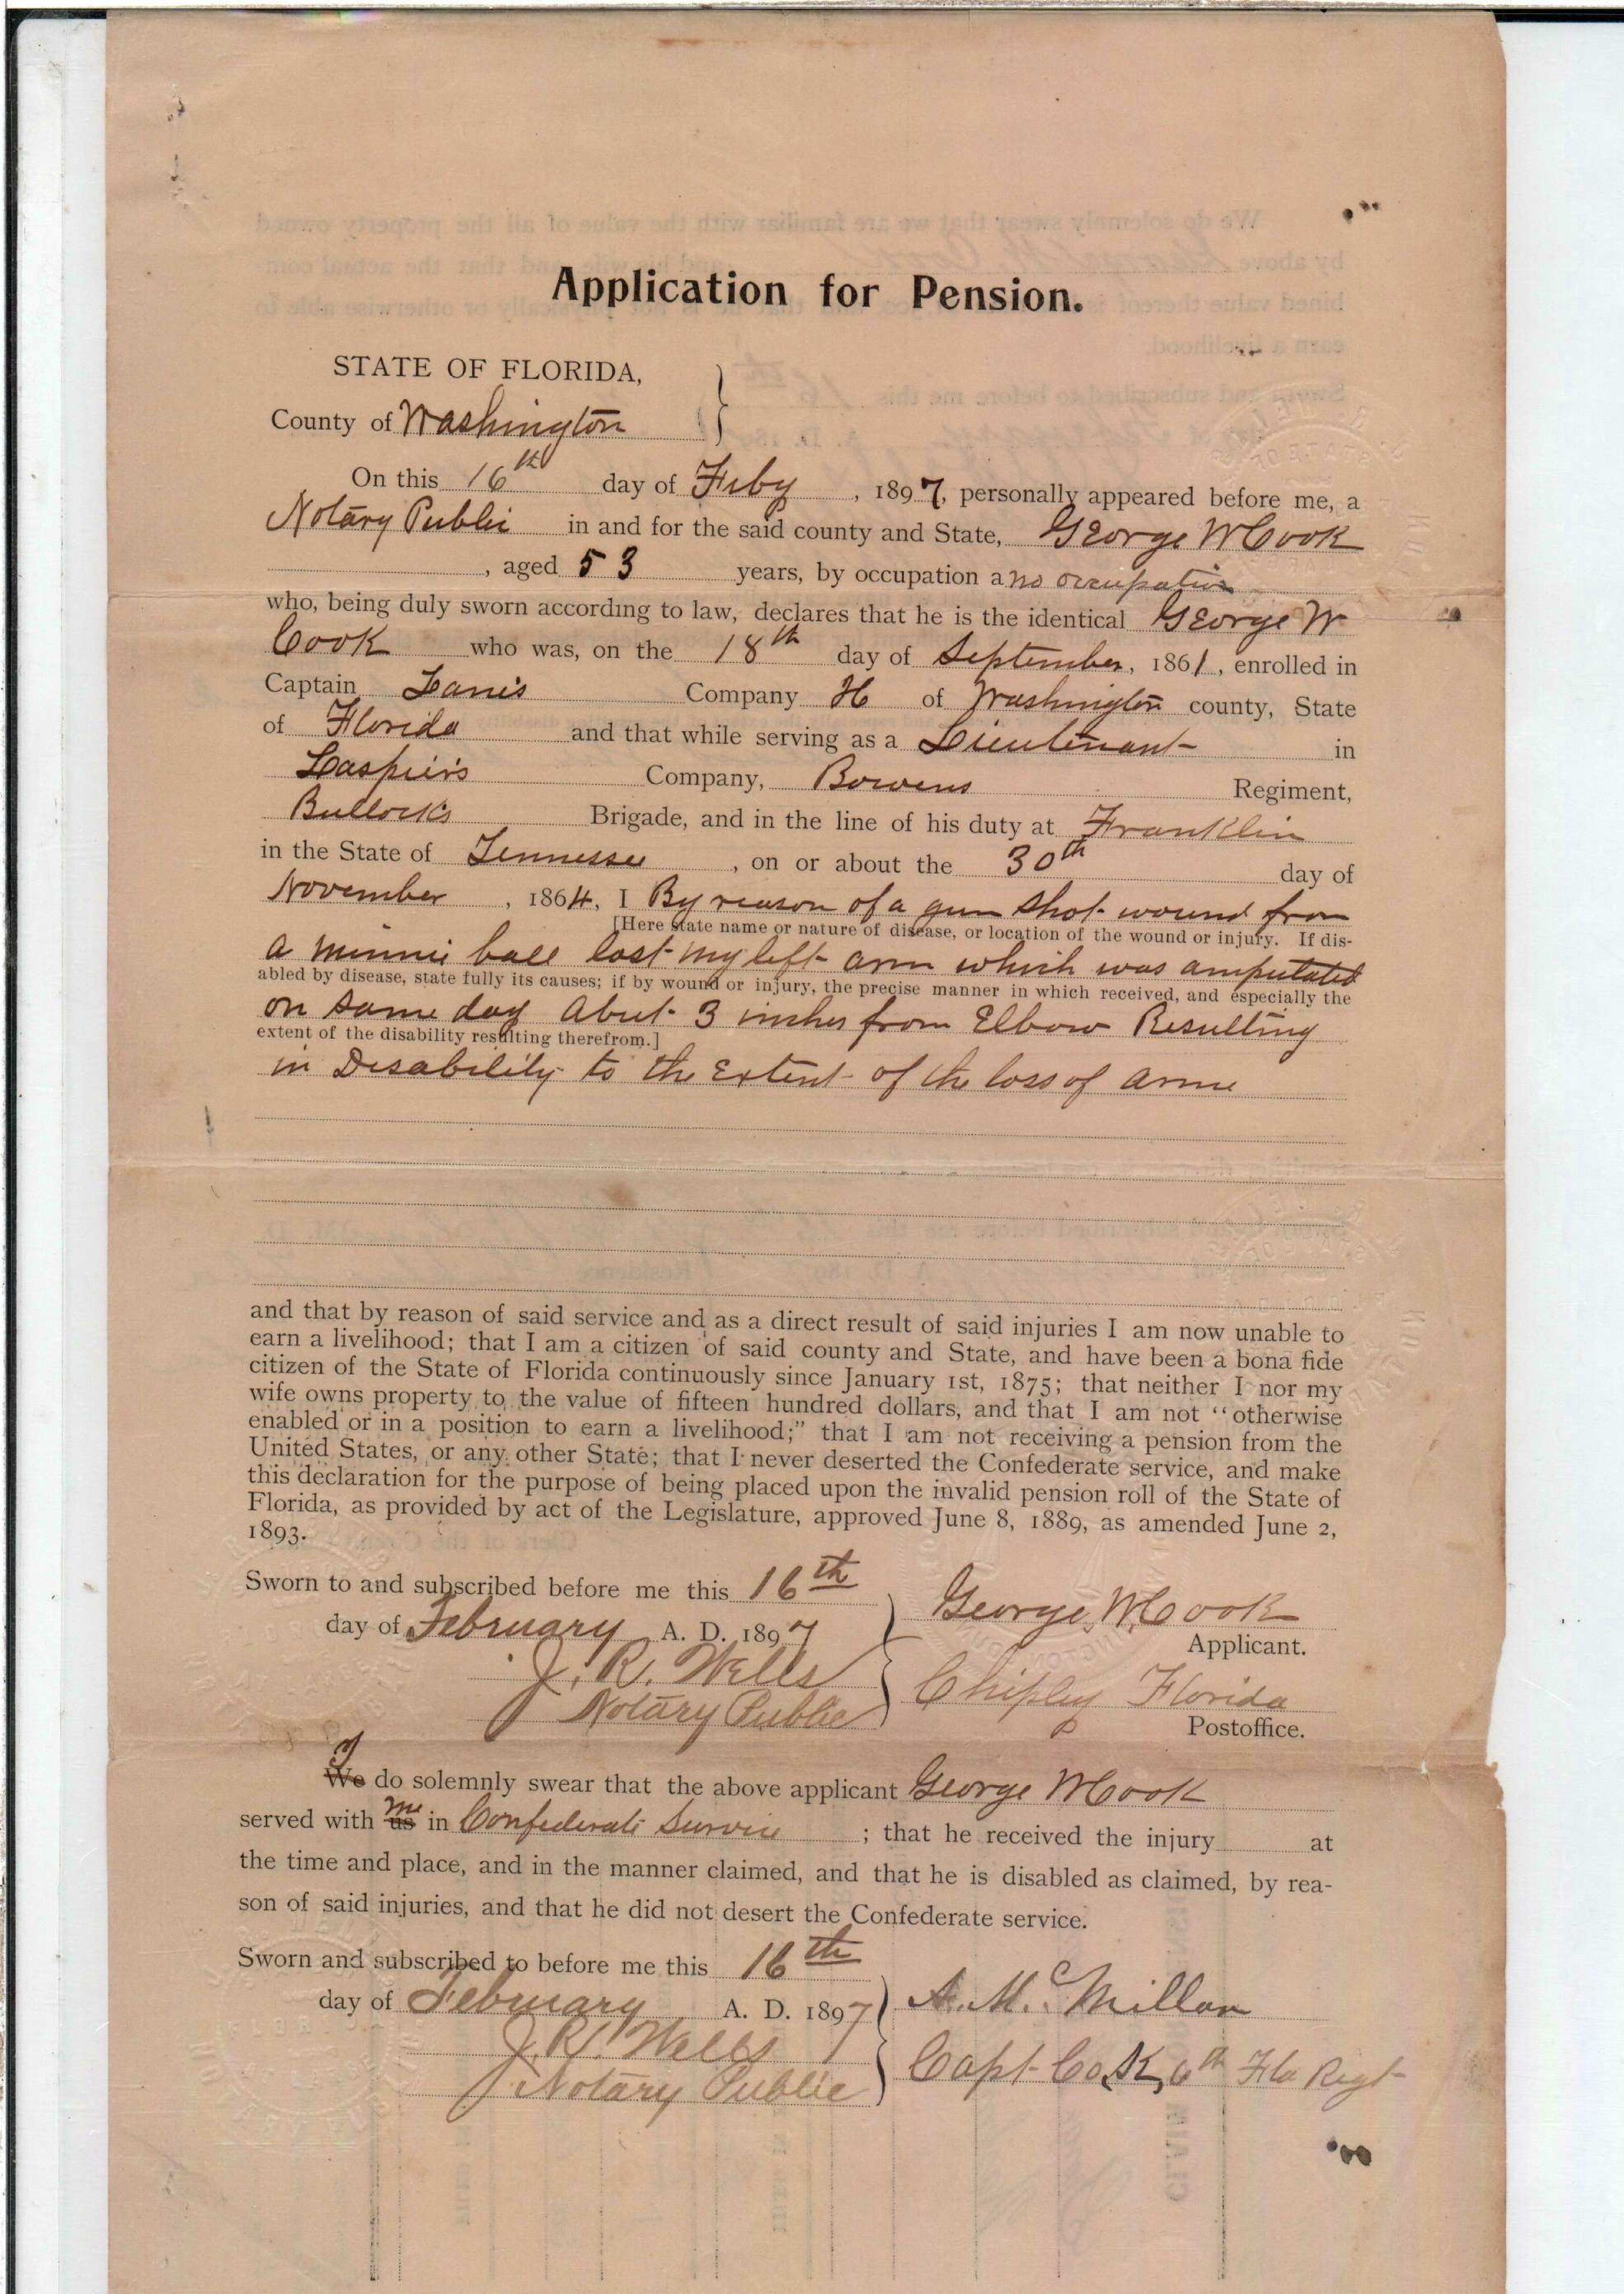 Application for Pension.
STATE OF FLORIDA,
County of Washington
On this 16th day of Feby, 1897, personally appeared before me, a
Notary Public in and for the said county and State, George W Cook
, aged 53 years, by occupation a no occupation
who, being duly sworn according to law, declares that he is the identical George W
Cook who was, on the 18th day of September, 1861, enrolled in
Captain Company H of Washington county, State
of Florida and that while serving as a Lieutenant in
Company, Bowens Regiment,
Bullock's Brigade, and in the line of his duty at Franklin
in the State of Tennessee, on or about the 30th day of
November, 1864, I By reason of a gun shot wound from
[Here state name or nature of disease, or location of the wound or injury. If dis-
a minnie ball lost my left arm which was amputated
abled by disease, state fully its causes; if by wound or injury, the precise manner in which received, and especially the
on same day about 3 inches from Elbow Resulting
extent of the disability resulting therefrom.]
in Disability to the Extent of the loss of arm
and that by reason of said service and as a direct result of said injuries I am now unable to
earn a livelihood; that I am a citizen of said county and State, and have been a bona fide
citizen of the State of Florida continuously since January 1st, 1875; that neither I nor my
wife owns property to the value of fifteen hundred dollars, and that I am not "otherwise
enabled or in a position to earn a livelihood;" that I am not receiving a pension from the
United States, or any other State; that I never deserted the Confederate service, and make
this declaration for the purpose of being placed upon the invalid pension roll of the State of
Florida, as provided by act of the Legislature, approved June 8, 1889, as amended June 2,
1893.
Sworn to and subscribed before me this 16th
day of February A. D. 1897
George W Cook
Applicant.
J. R. Wells
Notary Public
Chipley Florida
Postoffice.
I
We do solemnly swear that the above applicant George W Cook
served with us me in Confederate Service ; that he received the injury at
the time and place, and in the manner claimed, and that he is disabled as claimed, by rea-
son of said injuries, and that he did not desert the Confederate service.
Sworn and subscribed to before me this 16th
day of February A. D. 1897
A. McMillan
J. R. Wells
Notary Public
Capt Co K, 6th Fla Regt